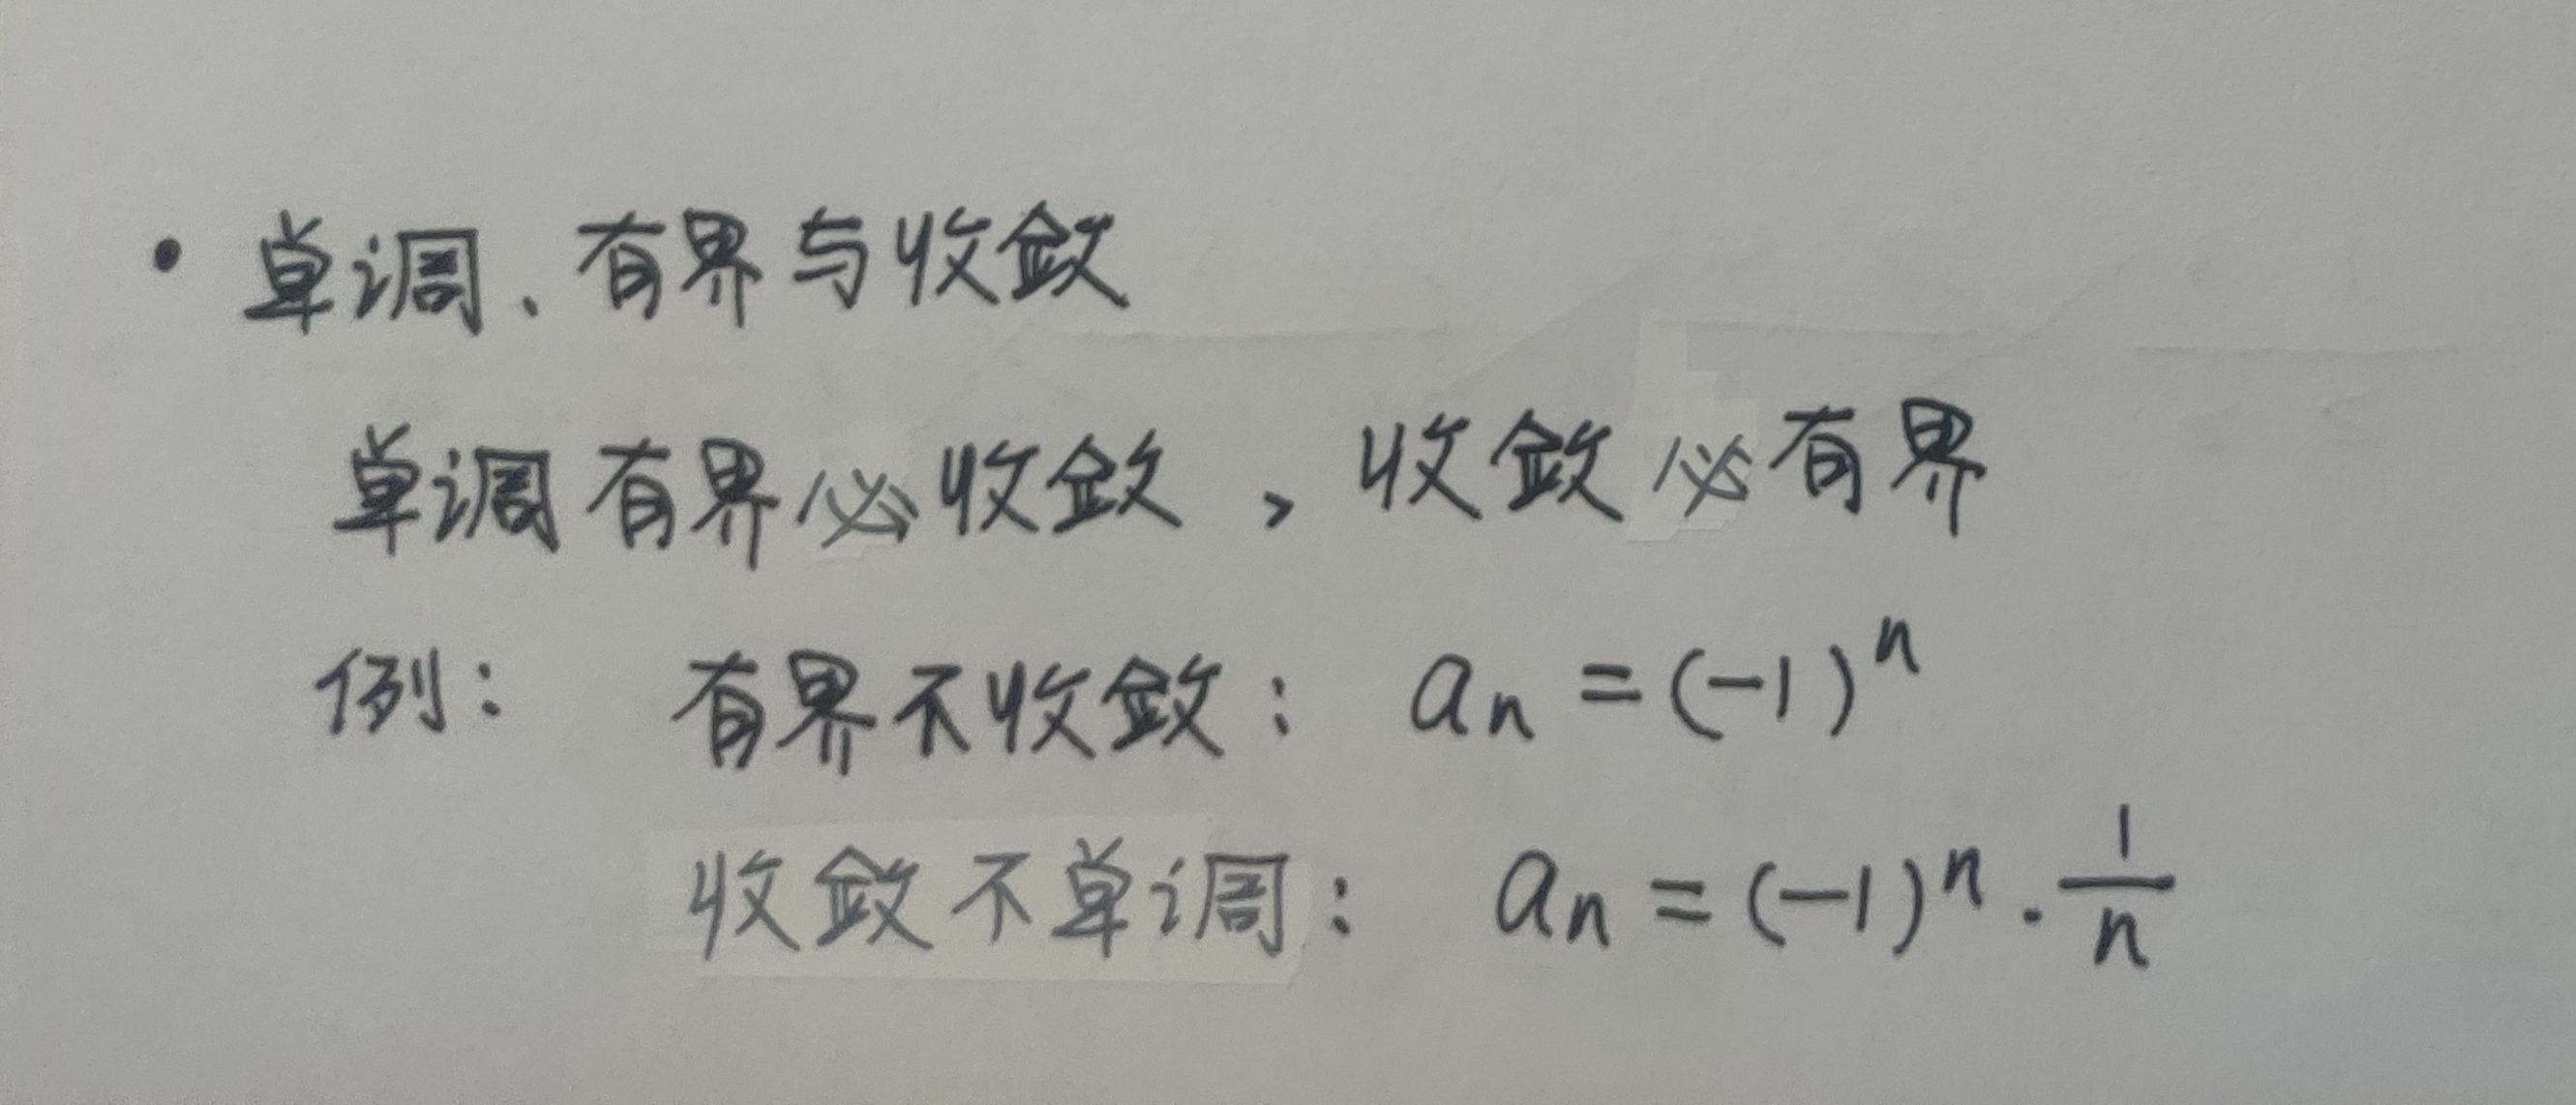 • 单调、有界与收敛
单调有界必收敛，收敛必有界
例： 有界不收敛： aₙ = (-1)ⁿ
收敛不单调： aₙ = (-1)ⁿ · 1/n